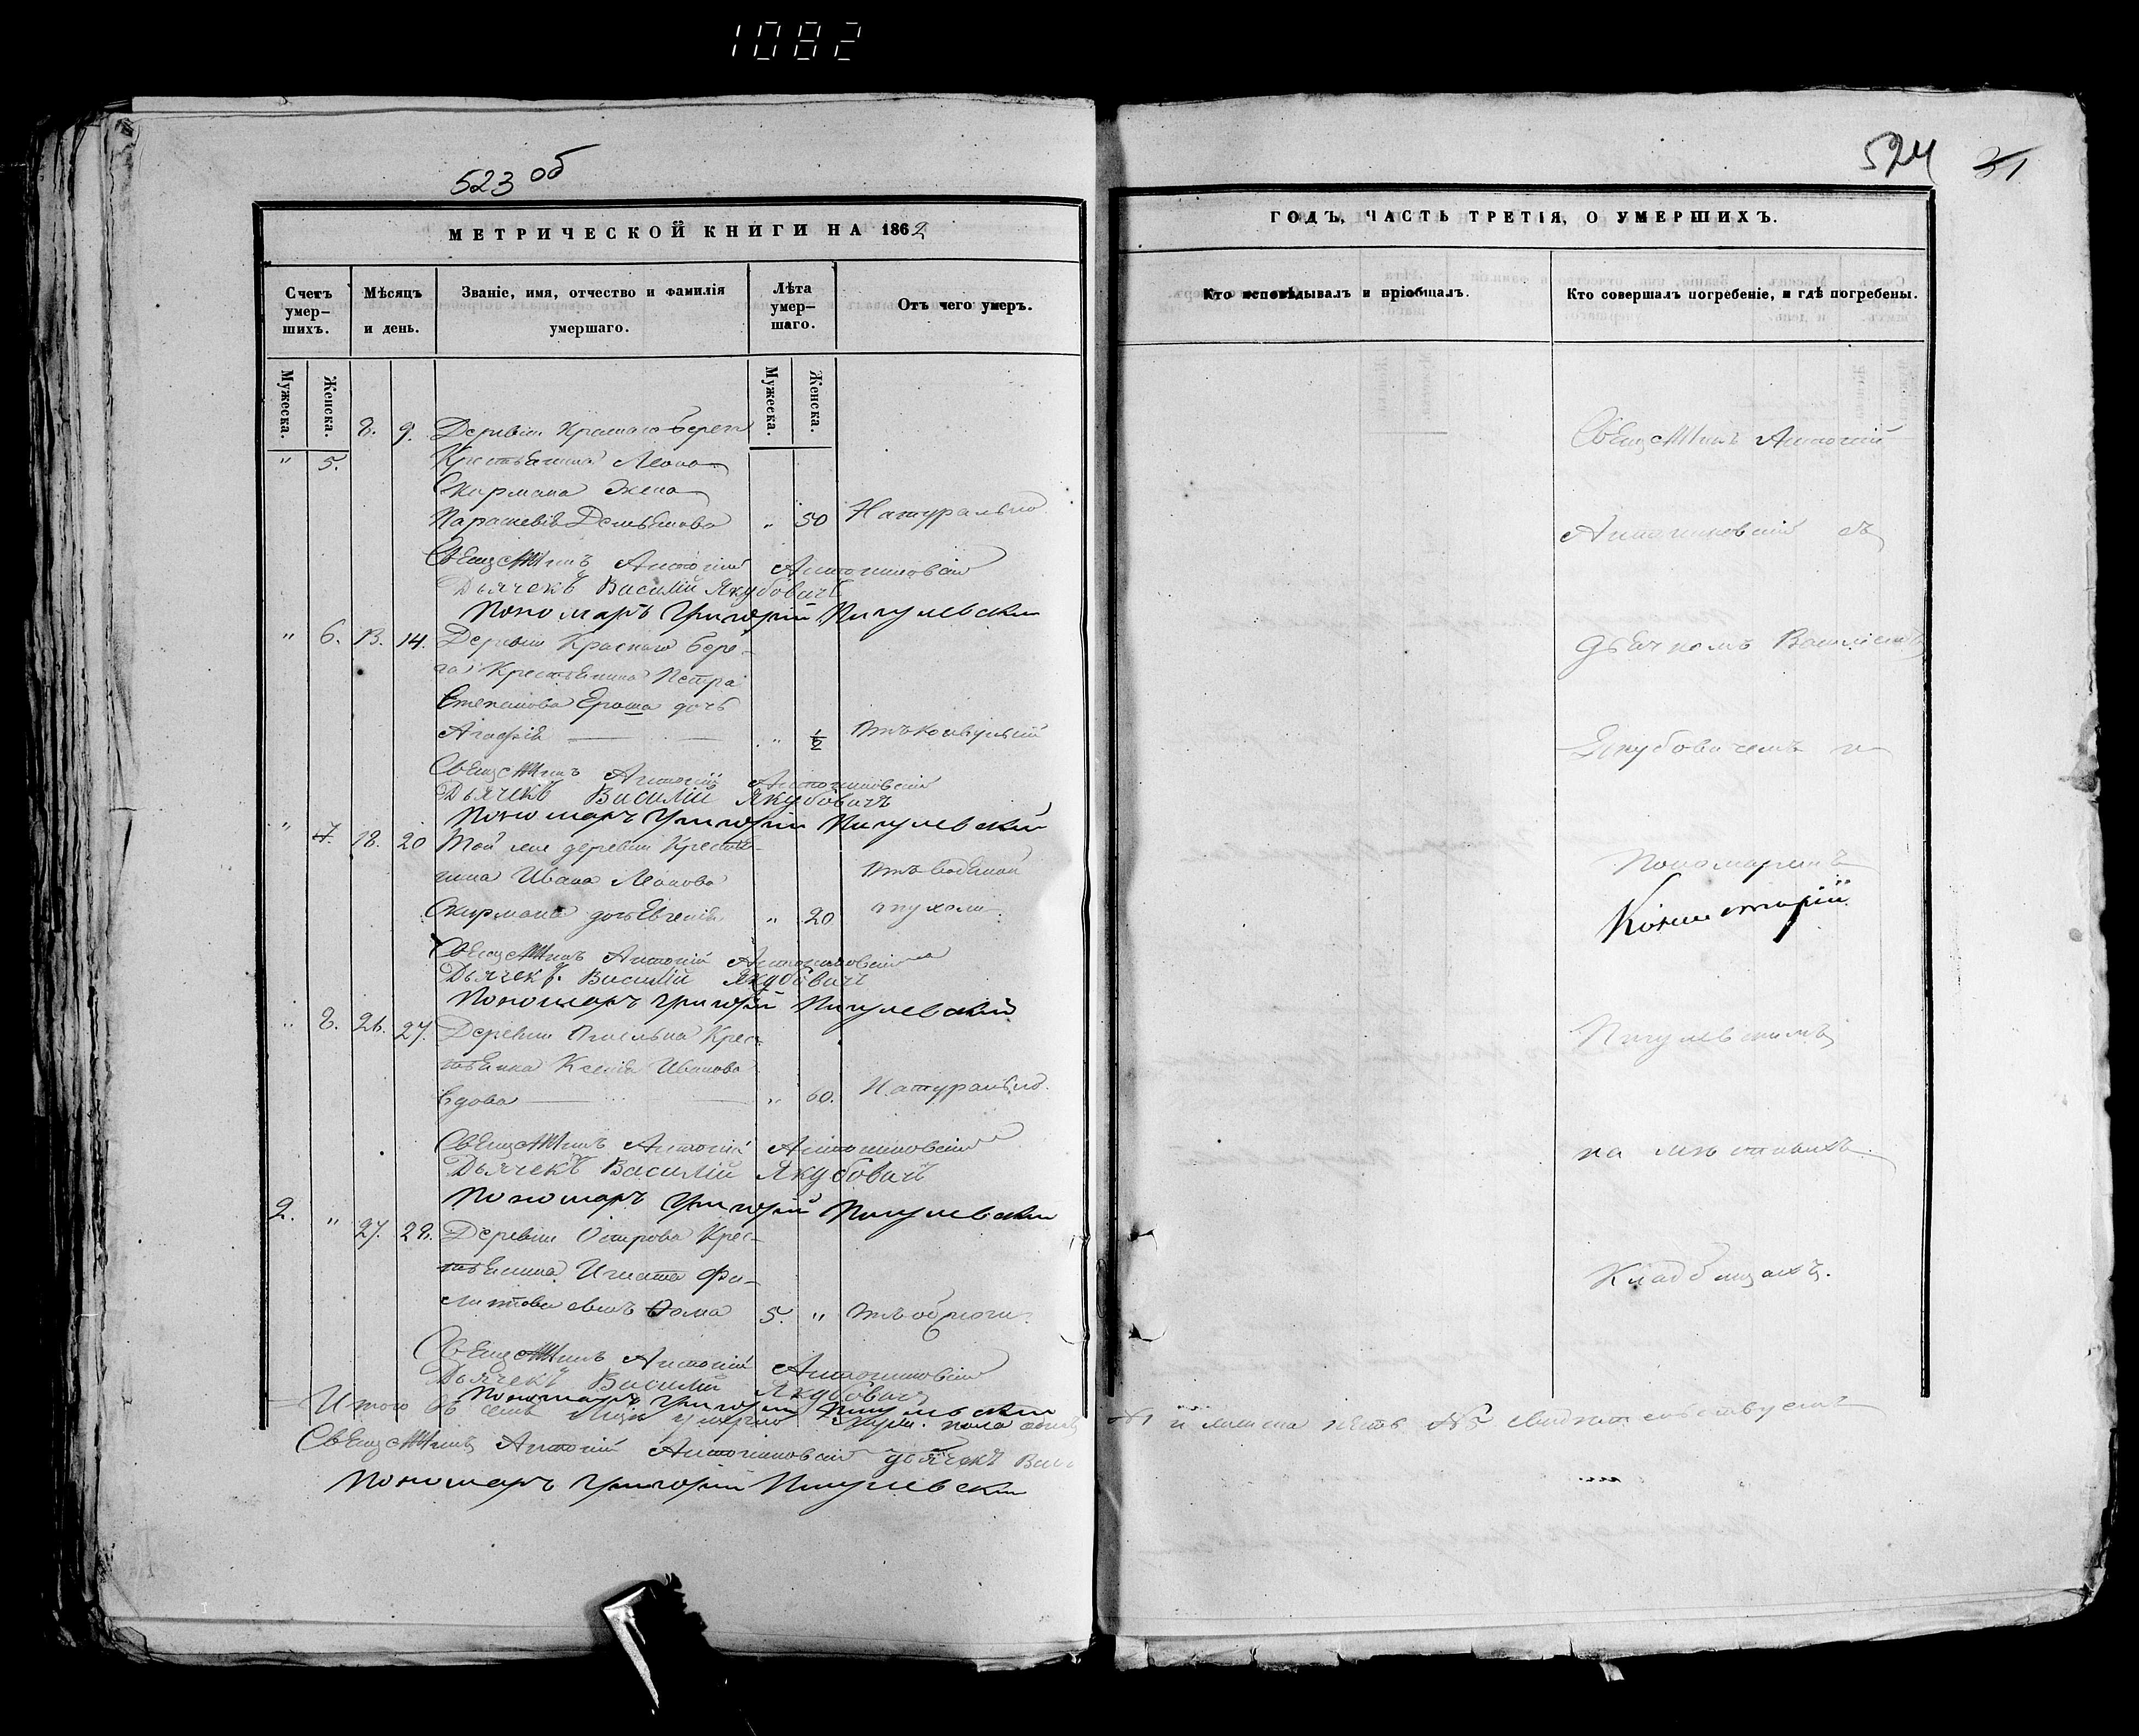 1082
523 об
МЕТРИЧЕСКОЙ КНИГИ НА 1862
Счетъ умер-шихъ.
Мѣсяцъ и день.
Званіе, имя, отчество и фамилія умершаго.
Лѣта умер-шаго.
Отъ чего умеръ.
Мужеска.
Женска.
Мужеска.
Женска.
8. 9. Деревни Краснаго берега
" 5. Крестьянина Леона
Скирмана Жена
Параскевія " 50 Натурально
Священникъ Антоній
Дьячекъ Василій Якубовичъ
Пономарь Григорій Пигулевскій
" 6. 13. 14. Деревни Краснаго бере-
га Крестьянина Петра
Степанова дочь
Агафія " ½ Отъ конвульсій
Священникъ Антоній
Дьячекъ Василій Якубовичъ
Пономарь Григорій Пигулевскій
" 7. 18. 20 Той же деревни Крестья-
нина Ивана Леонова Отъ водяной
Скирмана дочь Евгенія " 20 опухоли
Священникъ Антоній
Дьячекъ Василій Якубовичъ
Пономарь Григорій Пигулевскій
" 8. 26. 27. Деревни Крес-
тьянка Ксенія Иванова
Вдова " 60. Натурально.
Священникъ Антоній
Дьячекъ Василій Якубовичъ
Пономарь Григорій Пигулевскій
2. " 27. 28. Деревни Острова Крес-
тьянина Игната Фи-
липова сынъ Ѳома 5. "
Священникъ Антоній
Дьячекъ Василій Якубовичъ
Пономарь Григорій Пигулевскій
Итого въ семъ умерло муж. пола
Священникъ Антоній дьячекъ
Пономарь Григорій Пигулевскій
524 31
ГОДЪ, ЧАСТЬ ТРЕТІЯ, О УМЕРШИХЪ.
Кто исповѣдывалъ и пріобщалъ.
Кто совершалъ погребеніе, и гдѣ погребены.
Священникъ Антоній
съ
дьячкомъ Василіемъ
Якубовичемъ и
Пономаремъ
Пигулевскимъ
на мѣстныхъ
Кладбищахъ.